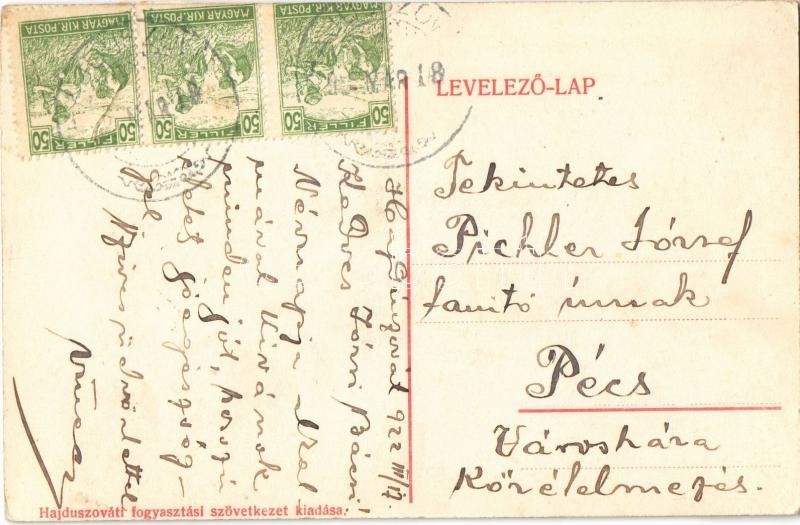 MAGYAR KIR. POSTA
50 FILLÉR 50
MAGYAR KIR. POSTA
50 FILLÉR 50
MAGYAR KIR. POSTA
50 FILLÉR 50
MÁR 18
LEVELEZŐ-LAP
Tekintetes
Pichler József
tanító úrnak
Pécs
Városháza
Közélelmezés.
Hajdúszovát 922 III/17.
Kedves Józsi Bácsi!
Névnapja alkal
mával kívánok
minden jót, hosszú
életet jó egészség-
gel.
Szívesüdvözlettel
Hajduszováti fogyasztási szövetkezet kiadása.